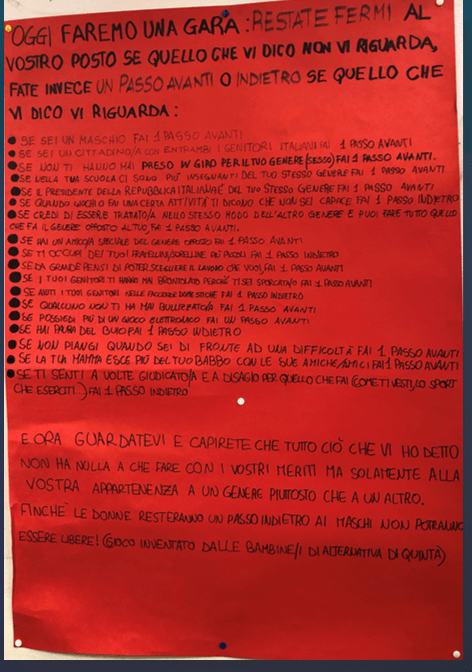 OGGI FAREMO UNA GARA: RESTATE FERMI AL
VOSTRO POSTO SE QUELLO CHE VI DICO NON VI RIGUARDA,
FATE INVECE UN PASSO AVANTI O INDIETRO SE QUELLO CHE
VI DICO VI RIGUARDA:
● SE SEI UN MASCHIO FAI 1 PASSO AVANTI
● SE SEI UN CITTADINO/A CON ENTRAMBI I GENITORI ITALIANI FAI 1 PASSO AVANTI
● SE NON TI HANNO MAI PRESO IN GIRO PER IL TUO GENERE (SESSO) FAI 1 PASSO AVANTI.
● SE NELLA TUA SCUOLA CI SONO PIÙ INSEGNANTI DEL TUO STESSO GENERE FAI 1 PASSO AVANTI
● SE IL PRESIDENTE DELLA REPUBBLICA ITALIANA È DEL TUO STESSO GENERE FAI 1 PASSO AVANTI
● SE QUANDO GIOCHI O FAI UNA CERTA ATTIVITÀ TI DICONO CHE NON SEI CAPACE FAI 1 PASSO INDIETRO
● SE CREDI DI ESSERE TRATATO/A NELLO STESSO MODO DELL'ALTRO GENERE E PUOI FARE TUTTO QUELLO
CHE FA IL GENERE OPPOSTO AL TUO, FAI 1 PASSO AVANTI.
● SE HAI UN AMICO/A SPECIALE DEL GENERE OPPOSTO FAI 1 PASSO AVANTI
● SE TI OCCUPI DEI TUOI FRATELLINI/SORELLINE PIÙ PICCOLI FAI 1 PASSO INDIETRO
● SE DA GRANDE PENSI DI POTER SCEGLIERE IL LAVORO CHE VUOI, FAI 1 PASSO AVANTI
● SE I TUOI GENITORI TI HANNO MAI BRONTOLATO PERCHÈ TI SEI SPORCATO/A FAI 1 PASSO AVANTI
● SE AIUTI I TUOI GENITORI NELLE FACCENDE DOMESTICHE FAI 1 PASSO INDIETRO
● SE QUALCUNO NON TI HA MAI BULLIZZATO/A FAI 1 PASSO AVANTI
● SE POSSIEDI PIÙ DI UN GIOCO ELETTRONICO FAI UN PASSO AVANTI
● SE HAI PAURA DEL BUIO FAI 1 PASSO INDIETRO
● SE NON PIANGI QUANDO SEI DI FRONTE AD UNA DIFFICOLTÀ FAI 1 PASSO AVANTI
● SE LA TUA MAMMA ESCE PIÙ DEL TUO BABBO CON LE SUE AMICHE/AMICI FAI 1 PASSO AVANTI
● SE TI SENTI A VOLTE GIUDICATO/A E A DISAGIO PER QUELLO CHE FAI (COME TI VESTI, LO SPORT
CHE ESERCITI..) FAI 1 PASSO INDIETRO
E ORA GUARDATEVI E CAPIRETE CHE TUTTO CIÒ CHE VI HO DETTO
NON HA NULLA A CHE FARE CON I VOSTRI MERITI MA SOLAMENTE ALLA
VOSTRA APPARTENENZA A UN GENERE PIUTTOSTO CHE A UN ALTRO.
FINCHÈ LE DONNE RESTERANNO UN PASSO INDIETRO AI MASCHI NON POTRANNO
ESSERE LIBERE! (GIOCO INVENTATO DALLE BAMBINE/I DI ALTERNATIVA DI QUINTA)